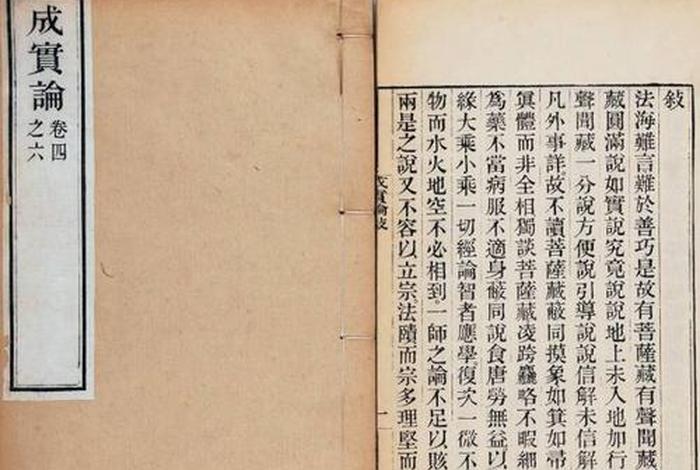 成實論
卷四
之六
敍
法海難言難於善巧是故有菩薩藏有聲聞藏
藏圓滿說如實說究竟說說地上未入地加行
聲聞藏一分說方便說引導說說信解未信解
凡外事詳故不讀菩薩藏蔽同摸象如箕如帚
眞體而非全相獨談菩薩藏凌跨麤略不暇細
爲藥不當病服不適身蔽同說食唐勞無益以
緣大乘小乘一切經論智者應學復次一微不
物而水火地空不必相到一師之論不足以賅
兩是之說又不容以立宗法賾而宗多理堅而
成實論敍
一